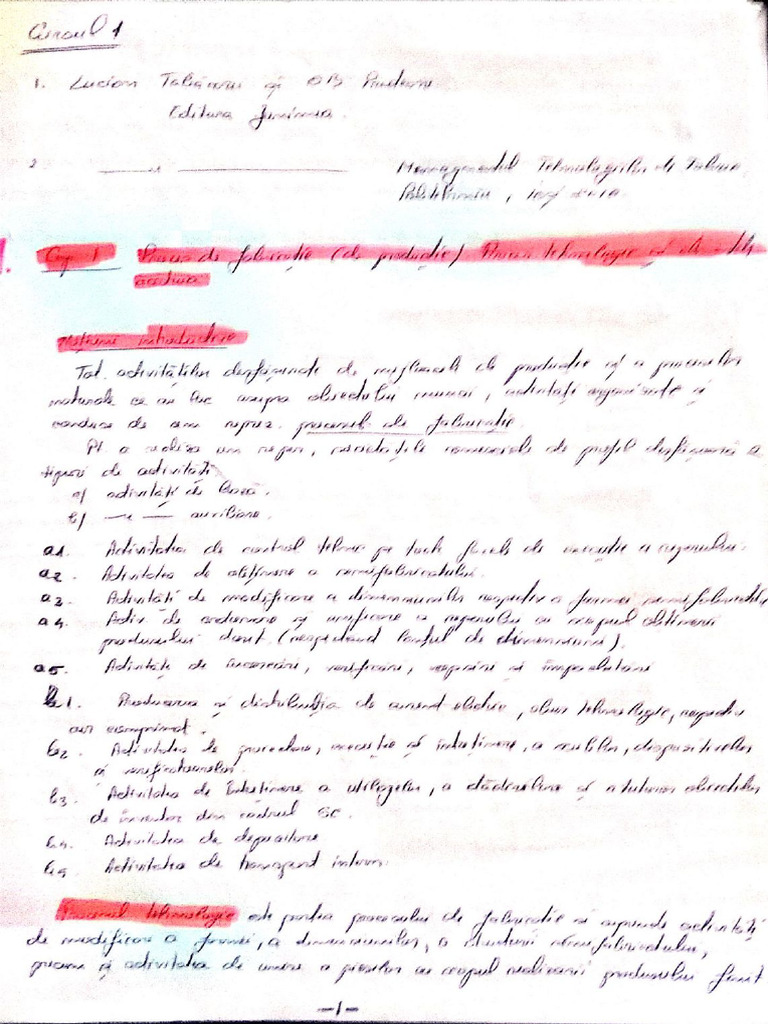 Cursul 1
1. Lucian Tălișanu și
Editura Junimea.
2. —— " ——— Managementul Tehnologiilor de
Politehnium, Iași 2010.
Cap. 1 Proces de fabricație (de producție) Proces tehnologic și
acestuia
Noțiuni introductive
Tot. activităților desfășurate de mijloacele de producție și a proceselor
naturale ce au loc asupra obiectului muncii, activități organizate și
conduse de om reprez. procesul de fabricație.
Pt. a realiza un reper, societățile comerciale de profil desfășoară 2
tipuri de activități
a) activități de bază.
b) — " — auxiliare.
a1. Activitatea de control tehnic pe toate fazele de execuție a reperului.
a2. Activitatea de obținere a semifabricatului.
a3. Activități de modificare a dimensiunilor respectiv a formei semifabricatelor
a4. Activ. de ordonare și a reperului cu scopul obținerii
produsului dorit. (respectând lanțul de dimensiuni).
a5. Activități de încercări, verificări, vopsiri și împachetări
b1. Producerea și distribuția de curent electric, abur tehnologic, respectiv
aer comprimat.
b2. Activitatea de execuție și întreținere, a sculelor, dispozitivelor
și verificatoarelor.
b3. Activitatea de întreținere a utilajelor, a clădirilor și a tuturor obiectelor
de inventar din cadrul SC.
b4. Activitatea de depozitare
Activitatea de transport intern.
Procesul tehnologic este partea procesului de fabricație și cuprinde activități
de modificare a formei, a dimensiunilor, a structurii semifabricatului,
precum și activitatea de unire a pieselor cu scopul realizării produsului finit
-1-